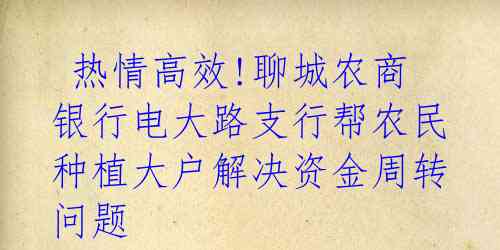 热情高效!聊城农商
银行电大路支行帮农民
种植大户解决资金周转
问题